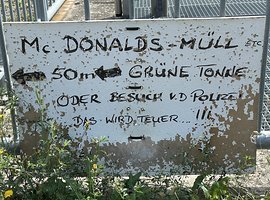 Mc DONALDS-MÜLL ETC
50m GRÜNE TONNE
ODER BESUCH V.D POLIZEI
DAS WIRD TEUER...!!!